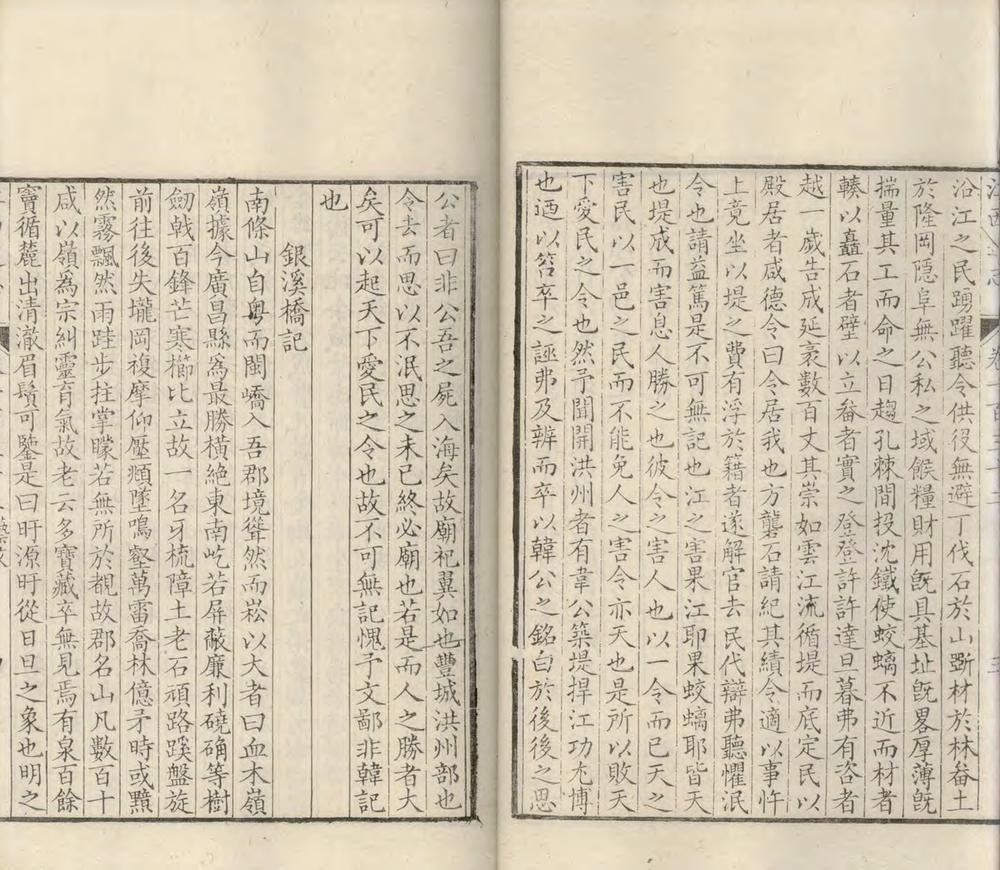 沿江之民踴躍聽令供役無避丁伐石於山斲材於林畚土
於隆岡隠阜無公私之域餱糧財用旣具基址旣畧厚薄旣
揣量其工而命之日趨孔棘間投沈鐵使蛟螭不近而材者
轃以矗石者壁以立畚者實之登登許許達旦暮弗有咨者
越一嵗告成延袤數百丈其崇如雲江流循堤而底定民以
殿居者咸德令曰令居我也方礱石請紀其績令適以事忤
上竟坐以堤之費有浮於籍者遂解官去民代辯弗聽懼泯
令也請益篤是不可無記也江之害果江耶果蛟螭耶皆天
也堤成而害息人勝之也彼令之害人也以一令而已天之
害民以一邑之民而不能免人之害令亦天也是所以敗天
下愛民之令也然予聞開洪州者有韋公築堤捍江功尤博
也迺以笞卒之誣弗及辨而卒以韓公之銘白於後後之思
公者曰非公吾之屍入海矣故廟祀翼如也豐城洪州部也
令去而思以不泯思之未已終必廟也若是而人之勝者大
矣可以起天下愛民之令也故不可無記愧予文鄙非韓記
也
銀溪橋記
南條山自粤而閩嶠入吾郡境聳然而崧以大者曰血木嶺
嶺據今廣昌縣爲最勝橫絶東南屹若屏蔽廉利磽确等樹
劒戟百鋒芒寒櫛比立故一名牙梳障土老石頑路蹊盤旋
前往後失壠岡複摩仰壓頫墜鳴壑萬雷喬林億矛時或黯
然霧飄然雨跬步拄掌矇若無所於覩故郡名山凡數百十
咸以嶺爲宗糾靈育氣故老云多寶藏卒無見焉有泉百餘
竇循麓出清澈眉鬚可鑒是曰旴源旴從日旦之象也明之